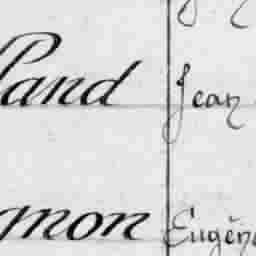 land Jean
gnon Eugène